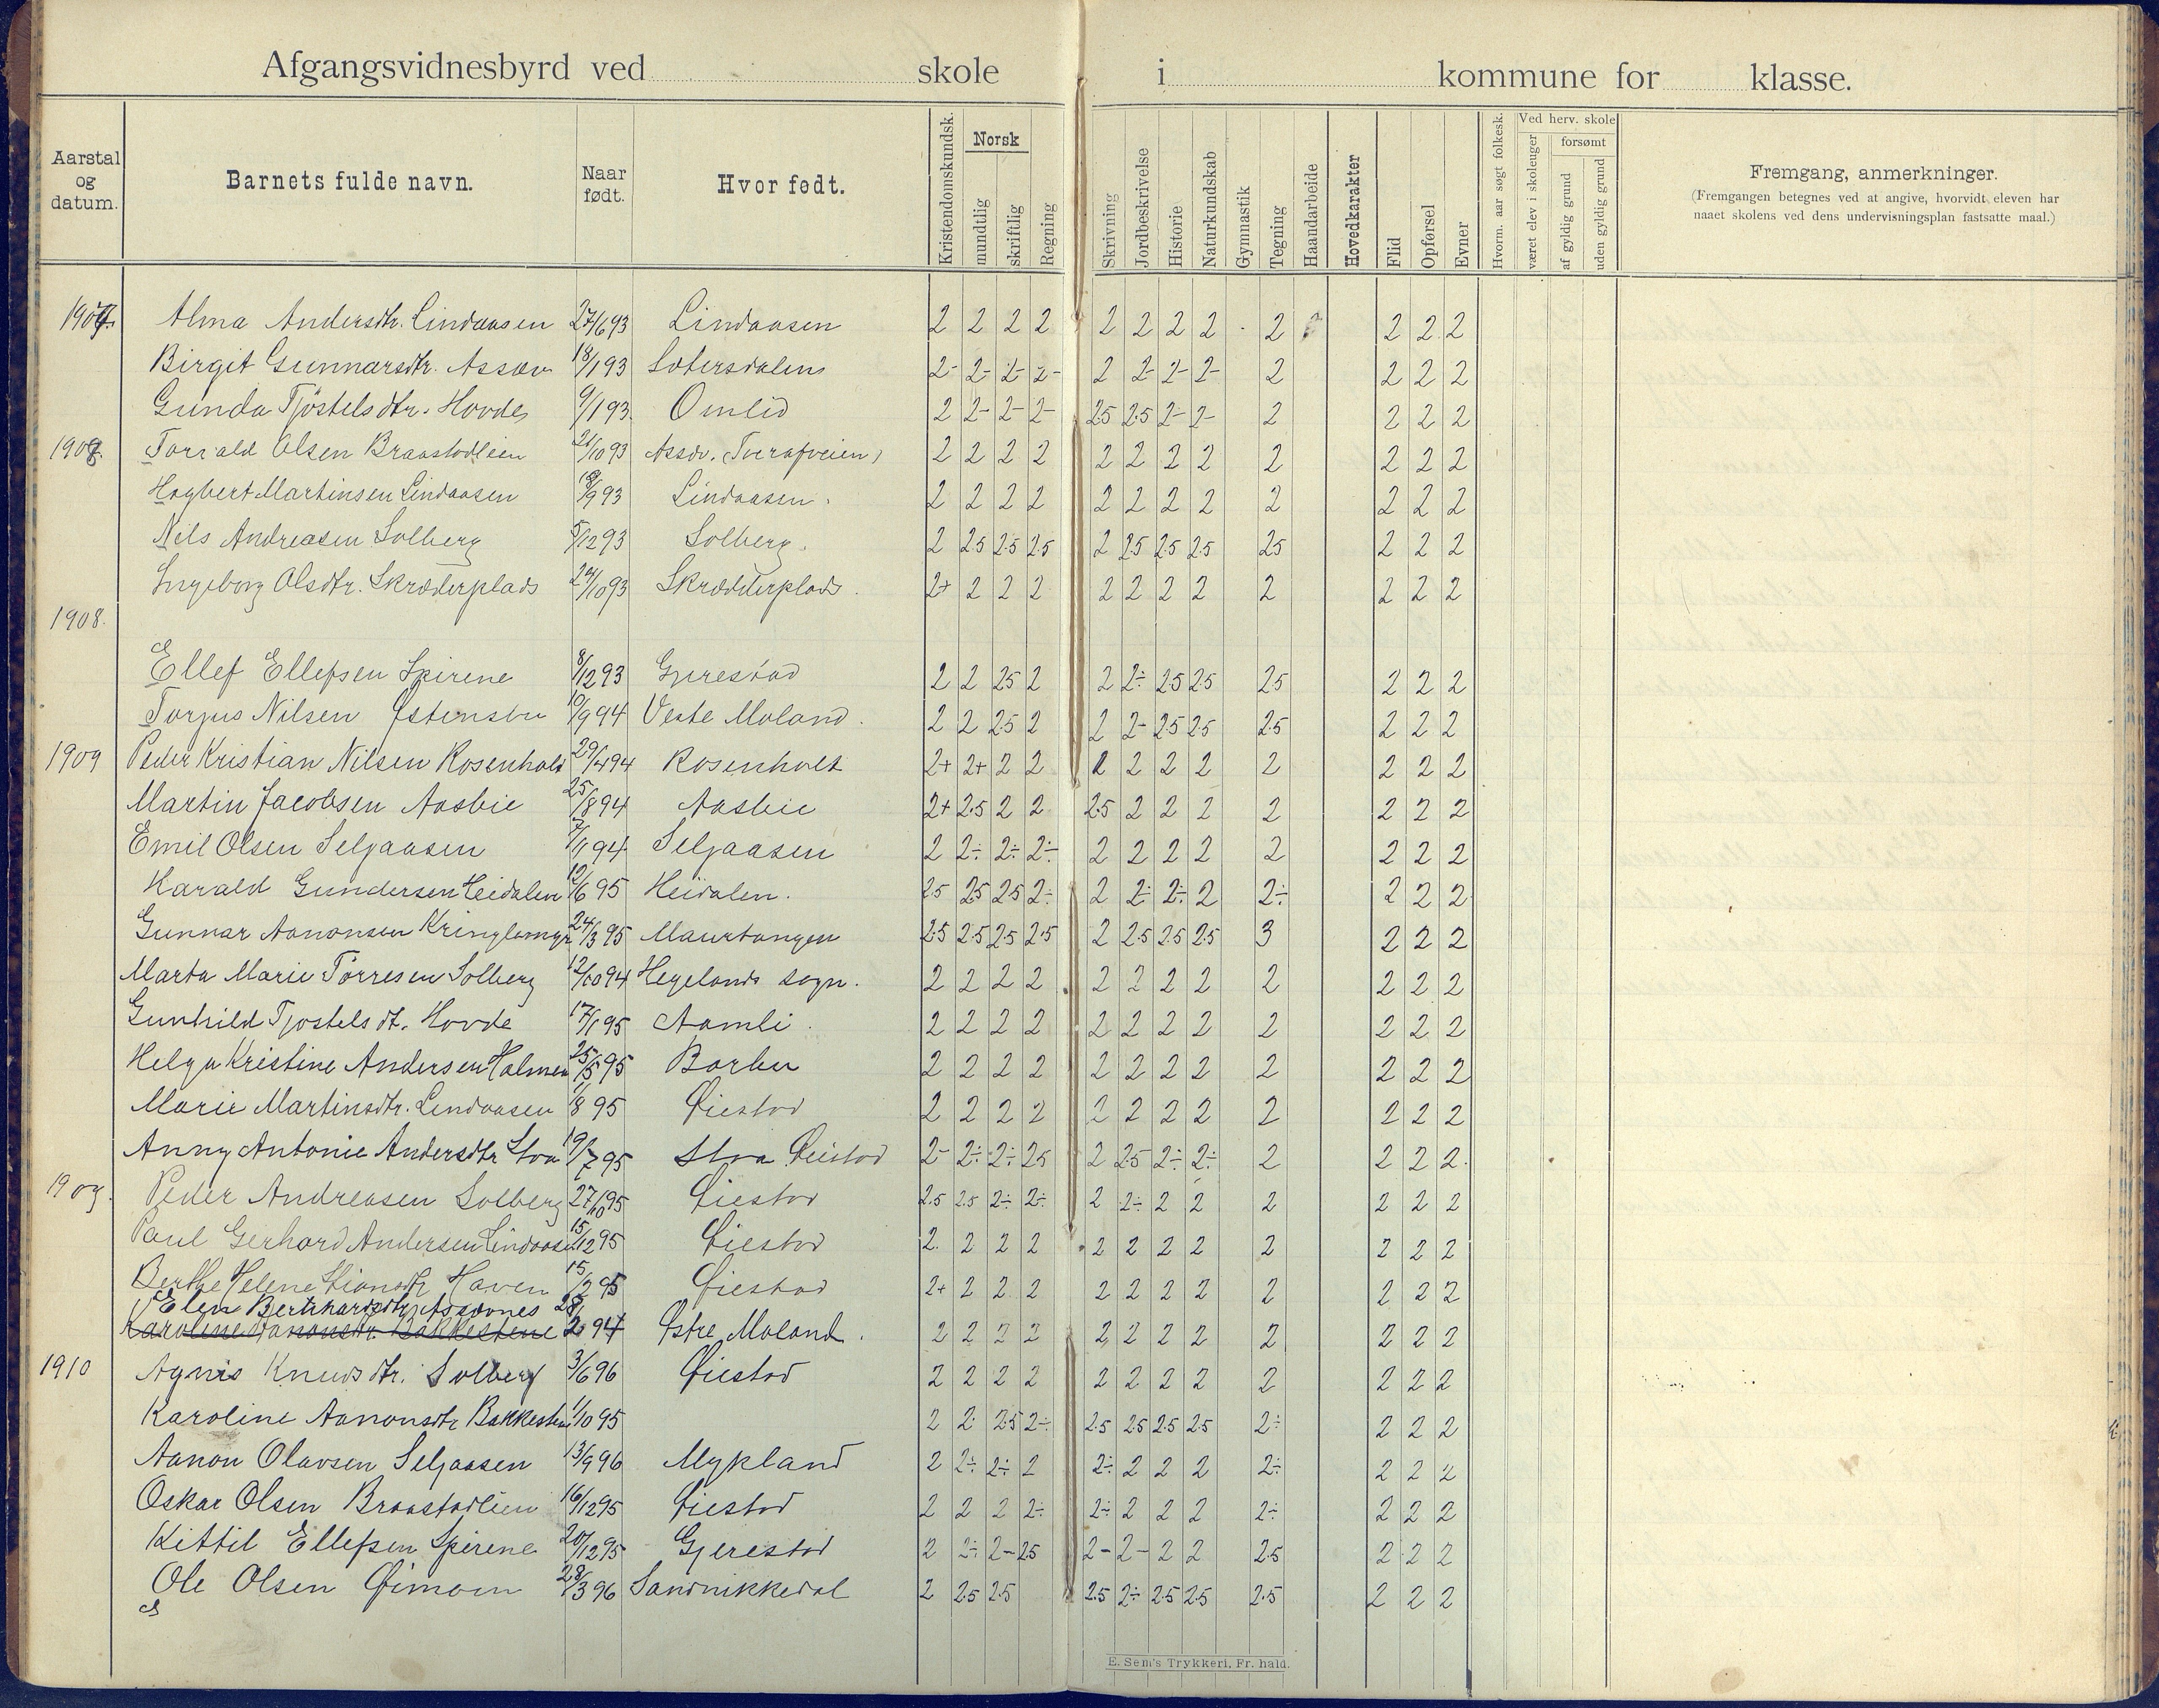 Afgangsvidnesbyrd ved skole i kommune for klasse.
Aarstal og datum.
Barnets fulde navn.
Naar født.
Hvor født.
Kristendomskundsk.
Norsk
mundtlig
skriftlig
Regning
Skrivning
Jordbeskrivelse
Historie
Naturkundskab
Gymnastik
Tegning
Haandarbeide
Hovedkarakter
Flid
Opførsel
Evner
Hvorm. aar søgt folkesk.
Ved herv. skole
været elev i skoleuger
forsømt
af gyldig grund
uden gyldig grund
Fremgang, anmerkninger.
(Fremgangen betegnes ved at angive, hvorvidt eleven har
naaet skolens ved dens undervisningsplan fastsatte maal.)
1907. Alma Andersdtr. Lindaasen 27/6 93 Lindaasen 2 2 2 2 2 2 2 2 2 2 2 2
Birgit Gunnarsdtr. Assæv 18/1 93 Sætersdalen 2- 2- 2- 2- 2 2- 2- 2- 2 2 2 2
Gunda Tjöstelsdtr. Hovde 9/1 93 Omlid 2 2- 2- 2- 2.5 2.5 2- 2- 2 2 2 2
1908. Torvald Olsen Braastadlien 21/10 93 2 2 2 2 2 2 2 2 2 2 2 2
Hagbert Martinsen Lindaasen 18/9 93 Lindaasen. 2 2 2 2 2 2 2 2 2 2 2 2
Nils Andreasen Solberg 5/12 93 Solberg. 2 2.5 2.5 2.5 2 2.5 2.5 2.5 2.5 2 2 2
Ingeborg Olsdtr. Skræderplads 24/10 93 Skrædderplads. 2+ 2 2 2 2 2 2 2 2 2 2 2
1908.
Ellef Ellefsen Spirene 8/12 93 Gjerestad 2 2 2.5 2 2 2÷ 2.5 2.5 2.5 2 2 2
Torjus Nilsen Østensbu 10/9 94 Vestre Moland. 2 2 2.5 2 2 2- 2.5 2.5 2.5 2 2 2
1909 Peder Kristian Nilsen Rosenholt 29/4 94 Rosenholt 2+ 2+ 2 2 2 2 2 2 2 2 2 2
Martin Jacobsen Aasbie 25/8 94 Aasbie 2+ 2.5 2 2 2.5 2 2 2 2 2 2 2
Emil Olsen Seljaasen 7/1 94 Seljaasen 2 2÷ 2÷ 2÷ 2 2 2 2 2 2 2 2
Harald Gundersen Heidalen 12/6 95 Heidalen. 2.5 2.5 2.5 2÷ 2 2÷ 2÷ 2 2÷ 2 2 2
Gunnar Aanonsen Kringlemyr 24/3 95 Maurtangen 2.5 2.5 2.5 2.5 2 2.5 2.5 2.5 3 2 2 2
Marta Marie Torresen Solberg 12/10 94 Hegelands sogn. 2 2 2 2 2 2 2 2 2 2 2 2
Gunhild Tjostelsdt. Hovde 17/1 95 Aamli. 2 2 2 2 2 2 2 2 2 2 2 2
Helga Kristine Andersen Holmen 25/5 95 Barbu 2 2 2 2 2 2 2 2 2 2 2 2
Marie Martinsdtr. Lindaasen 1/8 95 Øiestad 2 2 2 2 2 2 2 2 2 2 2 2
Anny Antonie Andersdtr Stoa 19/7 95 Stoa Øiestad 2- 2÷ 2÷ 2.5 2 2.5 2÷ 2÷ 2 2 2 2.
1909. Peder Andreasen Solberg 27/10 95 Øiestad 2.5 2.5 2÷ 2÷ 2 2÷ 2 2 2 2 2 2
Paul Gerhard Andersen Lindaasen 15/12 95 Øiestad 2. 2 2 2 2 2 2 2 2 2 2 2
Berthe Helene Haven 15/2 95 Øiestad 2+ 2 2 2 2 2 2 2 2 2 2 2
Elen Bernhardsdtr Assævnes 28/
Karoline Aanonsdtr. Bakkestene 2 94 Østre Moland. 2 2 2 2 2 2 2 2 2 2 2 2
1910 Agnes Knudsdtr. Solberg 3/6 96 Øiestad 2 2 2 2 2 2 2 2 2 2 2 2
Karoline Aanonsdtr Bakkesten 1/10 95 2 2. 2.5 2÷ 2.5 2.5 2.5 2.5 2÷ 2 2 2
Aanon Olavsen Seljaasen 13/9 96 Mykland 2 2÷ 2÷ 2 2÷ 2 2 2 2÷ 2 2 2
Oskar Olsen Braastadlien 16/12 95 Øiestad 2 2 2 2÷ 2÷ 2 2 2 2÷ 2 2 2
Kittil Ellefsen Spirene 20/12 95 Gjerestad 2 2÷ 2- 2.5 2- 2- 2 2 2.5 2 2 2
Ole Olsen Øimoen 28/3 96 Sandnikkedal 2 2.5 2.5 2.5 2÷ 2.5 2.5 2.5 2 2 2
E. Sem's Trykkeri, Fr.hald.